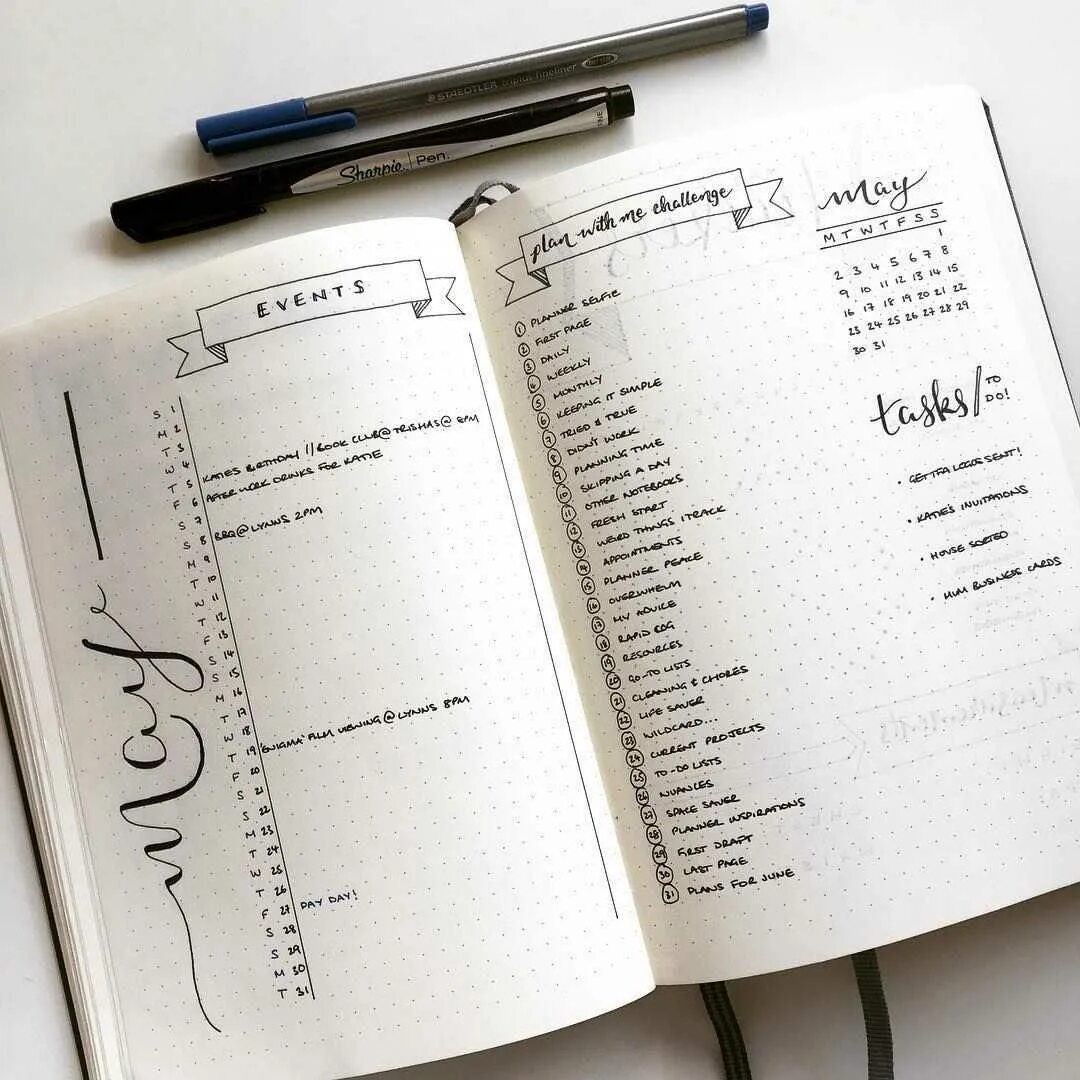 STAEDTLER triplus fineliner
Sharpie. Pen.
EVENTS
May
S 1
M 2
T 3
W 4
T 5 KATIES BIRTHDAY // BOOK CLUB@TRISHAS@
F 6 AFTER WORK DRINKS FOR KATIE
S 7
S 8 BBQ@LYNNS 2PM
M 9
T 10
W 11
T 12
F 13
S 14
S 15
M 16
T 17
W 18
T 19 'ENIGMA' FILM VIEWING@LYNNS 8PM
F 20
S 21
S 22
M 23
T 24
W 25
T 26
F 27 PAY DAY!
S 28
S 29
M 30
T 31
plan with me challenge
1 PLANNER SELFIE
2 FIRST PAGE
3 DAILY
4 WEEKLY
5 MONTHLY
6 KEEPING IT SIMPLE
7 TRIED & TRUE
8 DIDN'T WORK
9 PLANNING TIME
10 SKIPPING A DAY
11 OTHER NOTEBOOKS
12 FRESH START
13 WEIRD THINGS I TRACK
14 APPOINTMENTS
15 PLANNER PEACE
16 OVERWHELM
17 MY ADVICE
18 RAPID LOG
19 RESOURCES
20 GO-TO LISTS
21 CLEANING & CHORES
22 LIFE SAVER
23 WILDCARD...
24 CURRENT PROJECTS
25 TO-DO LISTS
26 NUANCES
27 SPACE SAVER
28 PLANNER INSPIRATIONS
29 FIRST DRAFT
30 LAST PAGE
31 PLANS FOR JUNE
may
M T W T F S S
1
2 3 4 5 6 7 8
9 10 11 12 13 14 15
16 17 18 19 20 21 22
23 24 25 26 27 28 29
30 31
tasks/TO DO!
• GET TFA LOGOS SENT!
• KATIE'S INVITATIONS
• HOUSE SORTED
• MUM BUSINESS CARDS